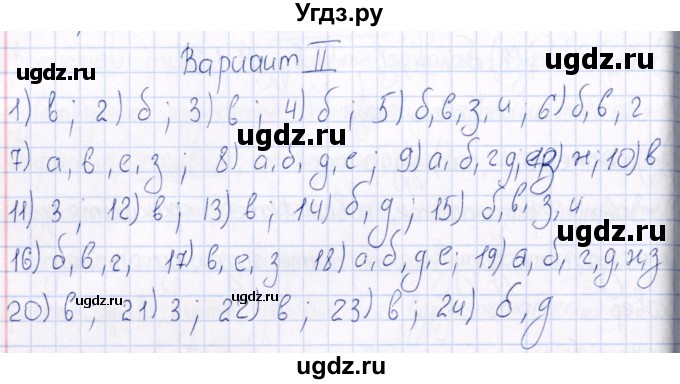 Угдз.ру
Вариант II
1) в; 2) б; 3) в; 4) б; 5) б, в, з, и; 6) б, в, г
7) а, в, е, з; 8) а, б, д, е; 9) а, б, г, д, ж; 10) в
11) з; 12) в; 13) в; 14) б, д; 15) б, в, з, и
16) б, в, г, 17) в, е, з 18) а, б, д, е; 19) а, б, г, д, ж, з
20) в, 21) з; 22) в; 23) в; 24) б, д
ugdz.ru
ugdz.ru
ugdz.ru
ugdz.ru
ugdz.ru
ugdz.ru
ugdz.ru
ugdz.ru
ugdz.ru